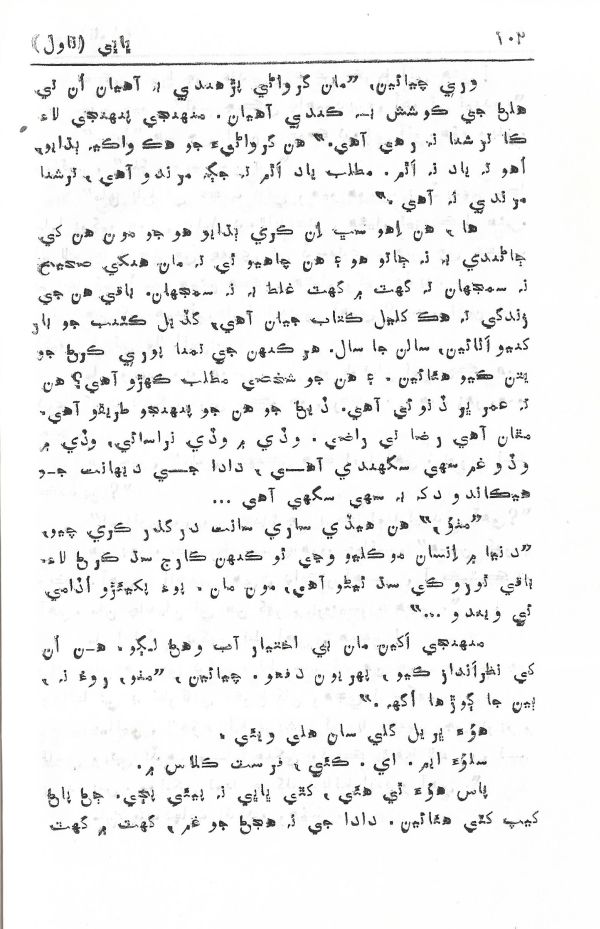 ۱۰۲ پاپي (ناول)
وري چيائين، ”مان گرواڻي پڙهندي بہ آهيان اُن تي
هلڻ جي ڪوشش بہ ڪندي آهيان. منهنجي پنهنجي لاءِ
ڪا ترشنا نہ رهي آهي.“ هن گرواڻيءَ جو هڪ واڪيہ ٻڌايو،
اُهو تہ ياد نہ اٿم. مطلب ياد اٿم تہ جڳ مرندو آهي، ترشنا
مرندي نہ آهي.“
ها، هن اِهو سڀ اِن ڪري ٻڌايو هو جو مون هن کي
ڄاڻندي بہ نہ ڄاتو هو ۽ هن چاهيو ٿي تہ مان هنکي صحيح
نہ سمجهان تہ گهٽ ۾ گهٽ غلط بہ نہ سمجهان. باقي هن جي
زندگي تہ هڪ کليل ڪتاب جيان آهي، گڏيل ڪٽنب جو بار
کنيو اٿائين، سالن جا سال. هر ڪنهن جي تمنا پوري ڪرڻ جو
يتن ڪيو هئائين. ۽ هن جو شخصي مطلب ڪهڙو آهي؟ هن
تہ عمر ڀر ڏنو ئي آهي. ڏيڻ جو هن جو پنهنجو طريقو آهي.
مٿان آهي رضا تي راضي. وڏي ۾ وڏي نراسائي، وڏي ۾
وڏو غم سهي سگهندي آهي، دادا جي ديهانت جو
هيڪاندو دک بہ سهي سگهي آهي ...
”منوُ،“ هن هيڏي ساري سانت درگذر ڪري چيو،
”دنيا ۾ اِنسان موڪليو وڃي ٿو ڪنهن ڪارج سڌ ڪرڻ لاءِ.
باقي ٿورو ڪي سڌ ٿيڻو آهي، مون مان. پوءِ پکيئڙو اُڏامي
ئي ويندو ...“
منهنجي اکين مان بي اختيار آب وهڻ لڳو. هن اُن
کي نظرانداز ڪيو، پهريون دفعو. چيائين، ”منو، روءُ نہ،
ٻين جا ڳوڙها اُگهہ.“
هوءَ پريل کلي سان هلي ويئي.
سلوُ ايم. اي. ڪئي، فرسٽ ڪلاس ۾.
پاس هوءَ ٿي هئي، کٽي پاپي نہ پيئي ٻچي. ڄڻ پاڻ
کيپ کٽي هئائين. دادا جي نہ هجڻ جو غم، گهٽ ۾ گهٽ